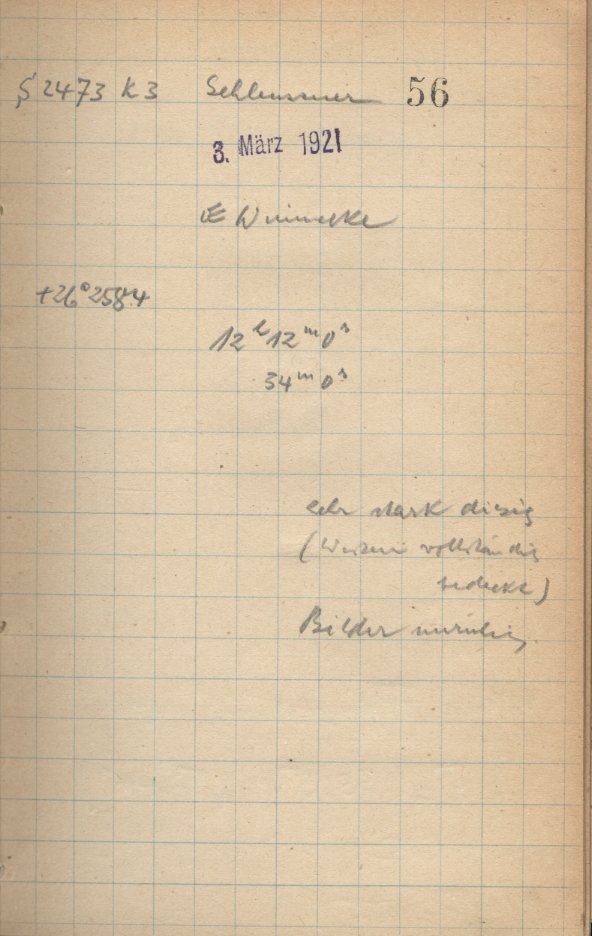 S 2473 K3 Schleussner 56
3. März 1921
Æ Winnecke
+26°2584
12h 12m 0s
34m 0s
sehr stark diesig
( vollständig
bedeckt)
Bilder unruhig.